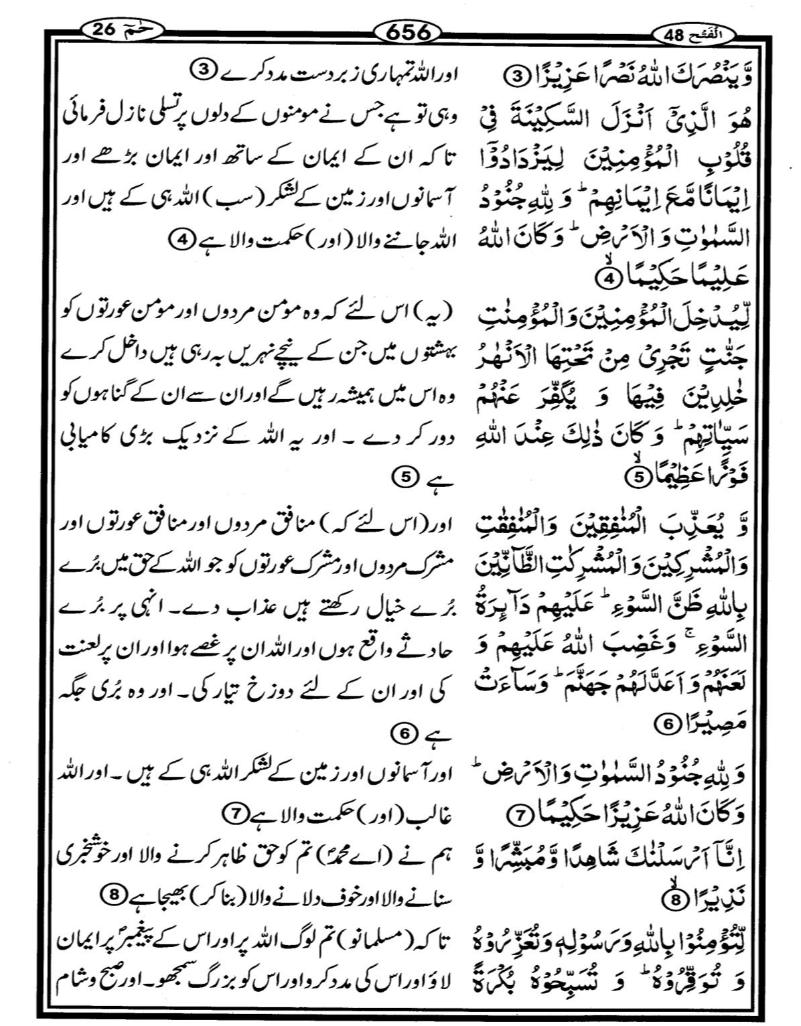 الْفَتْح 48
656
حٰمٓ 26
وَّيَنْصُرَكَ اللّٰهُ نَصْرًا عَزِيْزًا ③
هُوَ الَّذِيْۤ اَنْزَلَ السَّكِيْنَةَ فِيْ
قُلُوْبِ الْمُؤْمِنِيْنَ لِيَزْدَادُوْۤا
اِيْمَانًا مَّعَ اِيْمَانِهِمْ ؕ وَ لِلّٰهِ جُنُوْدُ
السَّمٰوٰتِ وَ الْاَرْضِ ؕ وَ كَانَ اللّٰهُ
عَلِيْمًا حَكِيْمًا ④
لِّيُدْخِلَ الْمُؤْمِنِيْنَ وَ الْمُؤْمِنٰتِ
جَنّٰتٍ تَجْرِيْ مِنْ تَحْتِهَا الْاَنْهٰرُ
خٰلِدِيْنَ فِيْهَا وَ يُكَفِّرَ عَنْهُمْ
سَيِّاٰتِهِمْ ؕ وَ كَانَ ذٰلِكَ عِنْدَ اللّٰهِ
فَوْزًا عَظِيْمًا ⑤
وَّ يُعَذِّبَ الْمُنٰفِقِيْنَ وَ الْمُنٰفِقٰتِ
وَ الْمُشْرِكِيْنَ وَ الْمُشْرِكٰتِ الظَّآنِّيْنَ
بِاللّٰهِ ظَنَّ السَّوْءِ ؕ عَلَيْهِمْ دَآىِٕرَةُ
السَّوْءِ ۚ وَ غَضِبَ اللّٰهُ عَلَيْهِمْ وَ
لَعَنَهُمْ وَ اَعَدَّ لَهُمْ جَهَنَّمَ ؕ وَ سَآءَتْ
مَصِيْرًا ⑥
وَ لِلّٰهِ جُنُوْدُ السَّمٰوٰتِ وَ الْاَرْضِ ؕ
وَ كَانَ اللّٰهُ عَزِيْزًا حَكِيْمًا ⑦
اِنَّاۤ اَرْسَلْنٰكَ شَاهِدًا وَّ مُبَشِّرًا وَّ
نَذِيْرًا ⑧
لِّتُؤْمِنُوْا بِاللّٰهِ وَ رَسُوْلِهٖ وَ تُعَزِّرُوْهُ
وَ تُوَقِّرُوْهُ ؕ وَ تُسَبِّحُوْهُ بُكْرَةً
اور اللہ تمہاری زبردست مدد کرے ③
وہی تو ہے جس نے مومنوں کے دلوں پر تسلی نازل فرمائی
تاکہ ان کے ایمان کے ساتھ اور ایمان بڑھے اور
آسمانوں اور زمین کے لشکر (سب) اللہ ہی کے ہیں اور
اللہ جاننے والا (اور) حکمت والا ہے ④
(یہ) اس لئے کہ وہ مومن مردوں اور مومن عورتوں کو
بہشتوں میں جن کے نیچے نہریں بہ رہی ہیں داخل کرے
وہ اس میں ہمیشہ رہیں گے اور ان سے ان کے گناہوں کو
دور کر دے ۔ اور یہ اللہ کے نزدیک بڑی کامیابی
ہے ⑤
اور (اس لئے کہ) منافق مردوں اور منافق عورتوں اور
مشرک مردوں اور مشرک عورتوں کو جو اللہ کے حق میں بُرے
بُرے خیال رکھتے ہیں عذاب دے۔ انہی پر بُرے
حادثے واقع ہوں اور اللہ ان پر غصے ہوا اور ان پر لعنت
کی اور ان کے لئے دوزخ تیار کی۔ اور وہ بُری جگہ
ہے ⑥
اور آسمانوں اور زمین کے لشکر اللہ ہی کے ہیں ۔ اور اللہ
غالب (اور) حکمت والا ہے ⑦
ہم نے (اے محمدؐ) تم کو حق ظاہر کرنے والا اور خوشخبری
سنانے والا اور خوف دلانے والا (بنا کر) بھیجا ہے ⑧
تاکہ (مسلمانو) تم لوگ اللہ پر اور اس کے پیغمبرؐ پر ایمان
لاؤ اور اس کی مدد کرو اور اس کو بزرگ سمجھو۔ اور صبح و شام